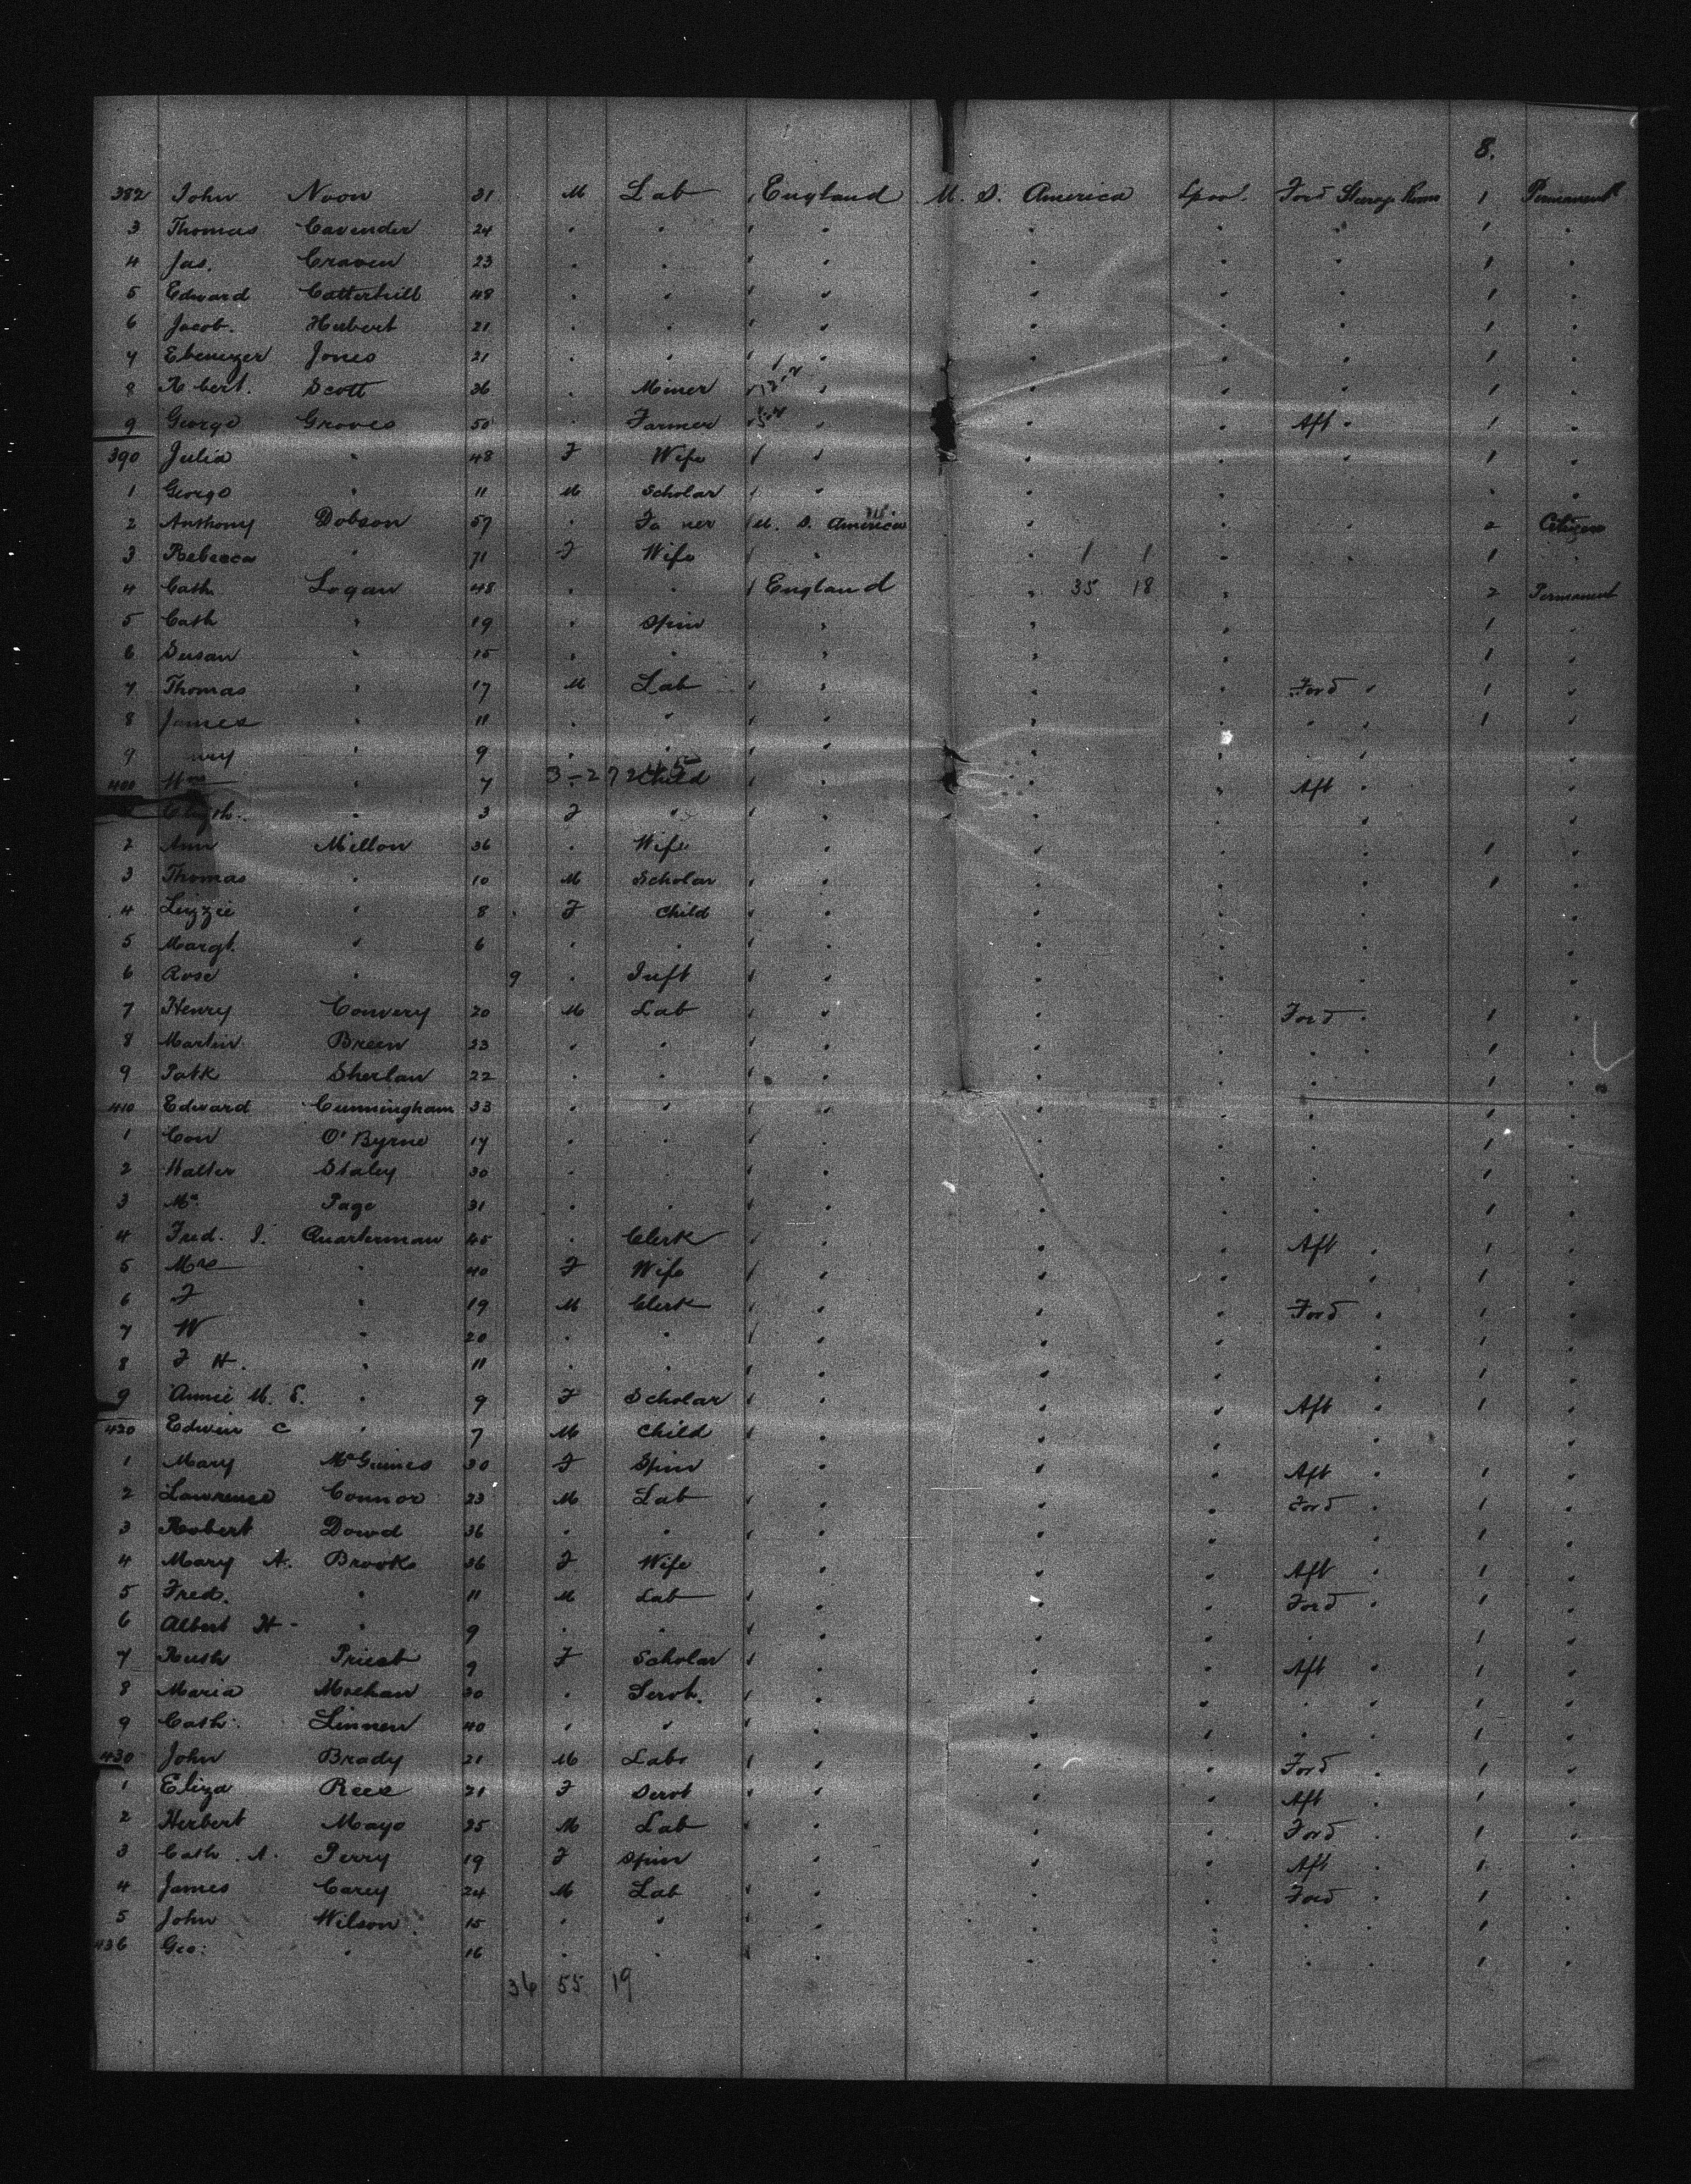 8.
382 John Noon 31 M Lab England U. S. America Lpool. Ford Steerage Room 1 Permanent
3 Thomas Cavender 24 " " " " " " 1 "
4 Jas. Craven 23 " " " " " " 1 "
5 Edward Catterhill 48 " " " " " " 1 "
6 Jacob. Hubert 21 " " " " " " 1 "
7 Ebenezer Jones 21 " " " " " " 1 "
8 R bert. Scott 36 " Miner " " " " 1 "
9 George Groves 50 " Farmer " " " Aft " 1 "
390 Julia " 48 F Wife " " " " 1 "
1 George " 11 M Scholar " " " " "
2 Anthony Dobson 57 " Fa mer U. S. America " " " 2 Citizen
3 Rebecca " 71 F Wife " " 1 1 " " 1
4 Cath Logan 48 " " England " 35 18 " 2 Permanent
5 Cath " 19 " Spin " " " 1 "
6 Susan " 15 " " " " " 1 "
7 Thomas " 17 M Lab " " " Ford " 1 "
8 James " 11 " " " " " " " 1 "
9 " 9 " " " " " " "
400 Wm " 7 3-272 Child " " " Aft " "
" 3 F " " " " " "
2 Ann Mellon 36 " Wife " " " " 1 "
3 Thomas " 10 M Scholar " " " " 1 "
4 Lizzie " 8 F Child " " " " "
5 Margt. " 6 " " " " " " "
6 Rose " 9 " Inft " " " " "
7 Henry Convery 20 M Lab " " " Ford " 1 "
8 Martin Breen 23 " " " " " " " 1 "
9 Patk Sherlan 22 " " " " " " 1 "
410 Edward Cunningham 33 " " " " " " 1 "
1 Con O'Byrne 17 " " " " " " 1 "
2 Walter Staley 30 " " " " " " 1 "
3 Mr. Page 31 " " " " " " " 1 "
4 Fred. J. Quarterman 45 " Clerk " " " Aft " 1 "
5 Mrs " 40 F Wife " " " " 1 "
6 F " 19 M Clerk " " " Ford " 1 "
7 W " 20 " " " " " " 1 "
8 F H. " 11 " " " " " " 1 "
9 Annie M. E. " 9 F Scholar " " " Aft " 1 "
420 Edwin C " 7 M Child " " " " "
1 Mary McGuines 30 F Spin " " " Aft " 1 "
2 Lawrence Connor 23 M Lab " " " Ford " 1 "
3 Robert Dowd 36 " " " " " " 1 "
4 Mary A. Brooks 36 F Wife " " " Aft " 1 "
5 Fred. " 11 M Lab " " " Ford " 1 "
6 Albert H " 9 " " " " " " " 1 "
7 Ruth Priest 9 F Scholar " " " Aft " 1 "
8 Maria Meehan 30 " Servt. " " " " " 1 "
9 Cath: Linnen 40 " " " " " " " 1 "
430 John Brady 21 M Labr " " " Ford " 1 "
1 Eliza Rees 21 F Servt " " " Aft " 1 "
2 Herbert Mayo 25 M Lab " " " Ford " 1 "
3 Cath. A. Perry 19 F Spin " " " Aft " 1 "
4 James Carey 24 M Lab " " " Ford " 1 "
5 John Wilson 15 " " " " " " " 1 "
436 Geo: " 16 " " " " " " " 1 "
36 55 19